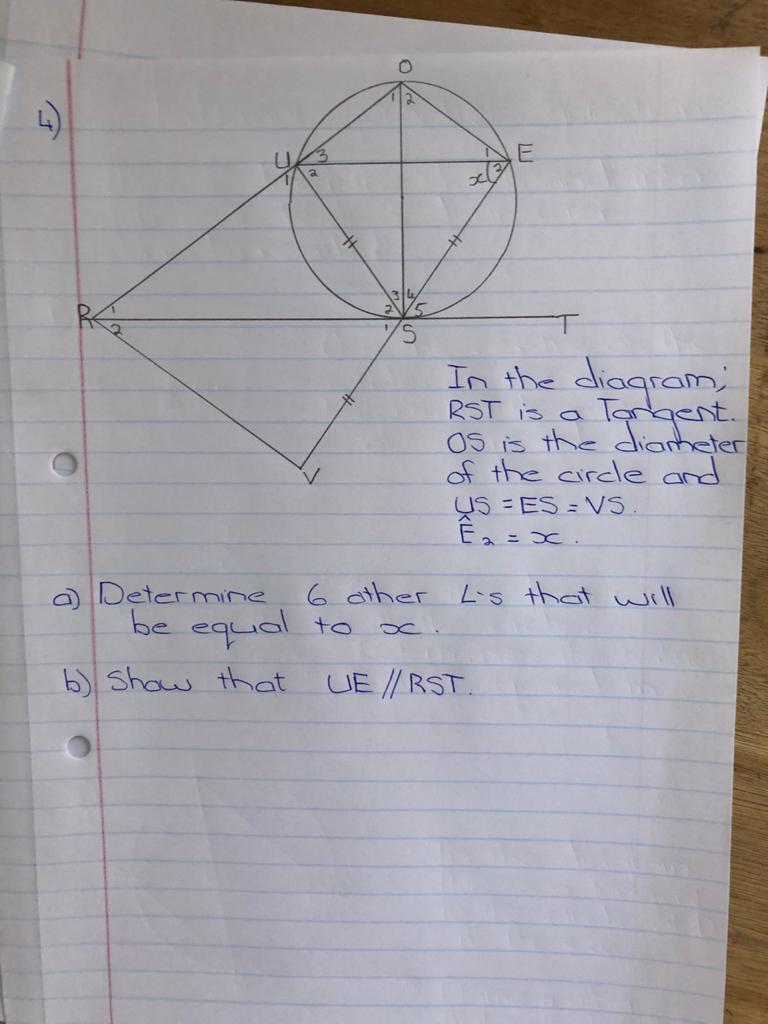 4)
O
1 2
U 3 1 E
1 2 x 2
3 4
R 1 2 5 T
2 1 S
V
In the diagram;
RST is a Tangent.
OS is the diameter
of the circle and
US = ES = VS.
Ê₂ = x.
a) Determine 6 other ∠'s that will
be equal to x.
b) Show that UE // RST.